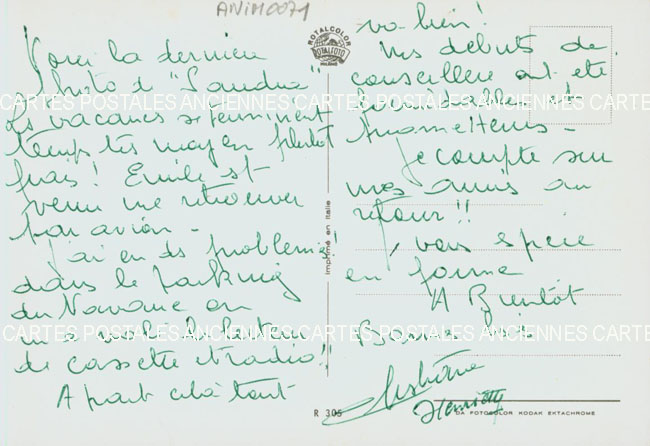 ANIM0071
Voici la dernière
photo de "Sandra"
Les vacances se terminent
temps très moyen plutôt
frais! Emile est
venu me retrouver
par avion -
J'ai eu des problèmes!
dans le parking
du Navarre on
m'a volé le lecteur
de cassette et radio!!
A part cela tout
va bien!
Mes débuts de
conseillère ont été
prometteurs -
Je compte sur
mes amis au
retour!!
vous espère
en forme
A Bientôt
Henriette
ROTALCOLOR
ROTALFOTO
MILANO
Imprimé en Italie
R 305
DA FOTOCOLOR KODAK EKTACHROME
CARTES POSTALES ANCIENNES CARTES POSTALES ANCIENNES CARTES
CARTES POSTALES ANCIENNES CARTES POSTALES ANCIENNES CARTES